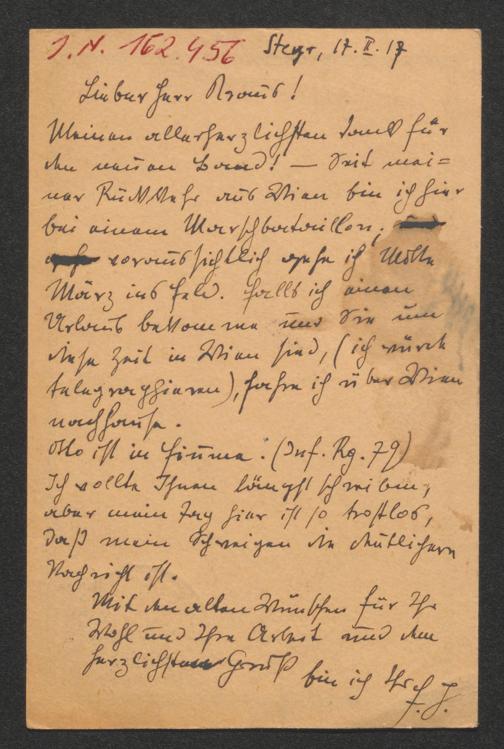 J.N. 162.456
Steyr, 17. II. 17
Lieber Herr Kraus!
Meinen allerherzlichsten Dank für
den neuen Band! — Seit mei=
ner Rückkehr aus Wien bin ich hier
bei einem Marschbataillon;
voraussichtlich gehe ich Mitte
März ins Feld. Falls ich einen
Urlaub bekomme und Sie um
diese Zeit in Wien sind, (ich würde
telegraphieren), fahre ich über Wien
nachhause.
Otto ist in Fiume. (Inf. Rg. 79)
Ich wollte Ihnen längst schreiben,
aber mein Tag hier ist so trostlos,
daß mein Schweigen die deutlichere
Nachricht ist.
Mit den alten Wünschen für Ihr
Wohl und Ihre Arbeit und dem
herzlichsten Gruß
bin ich Ihr